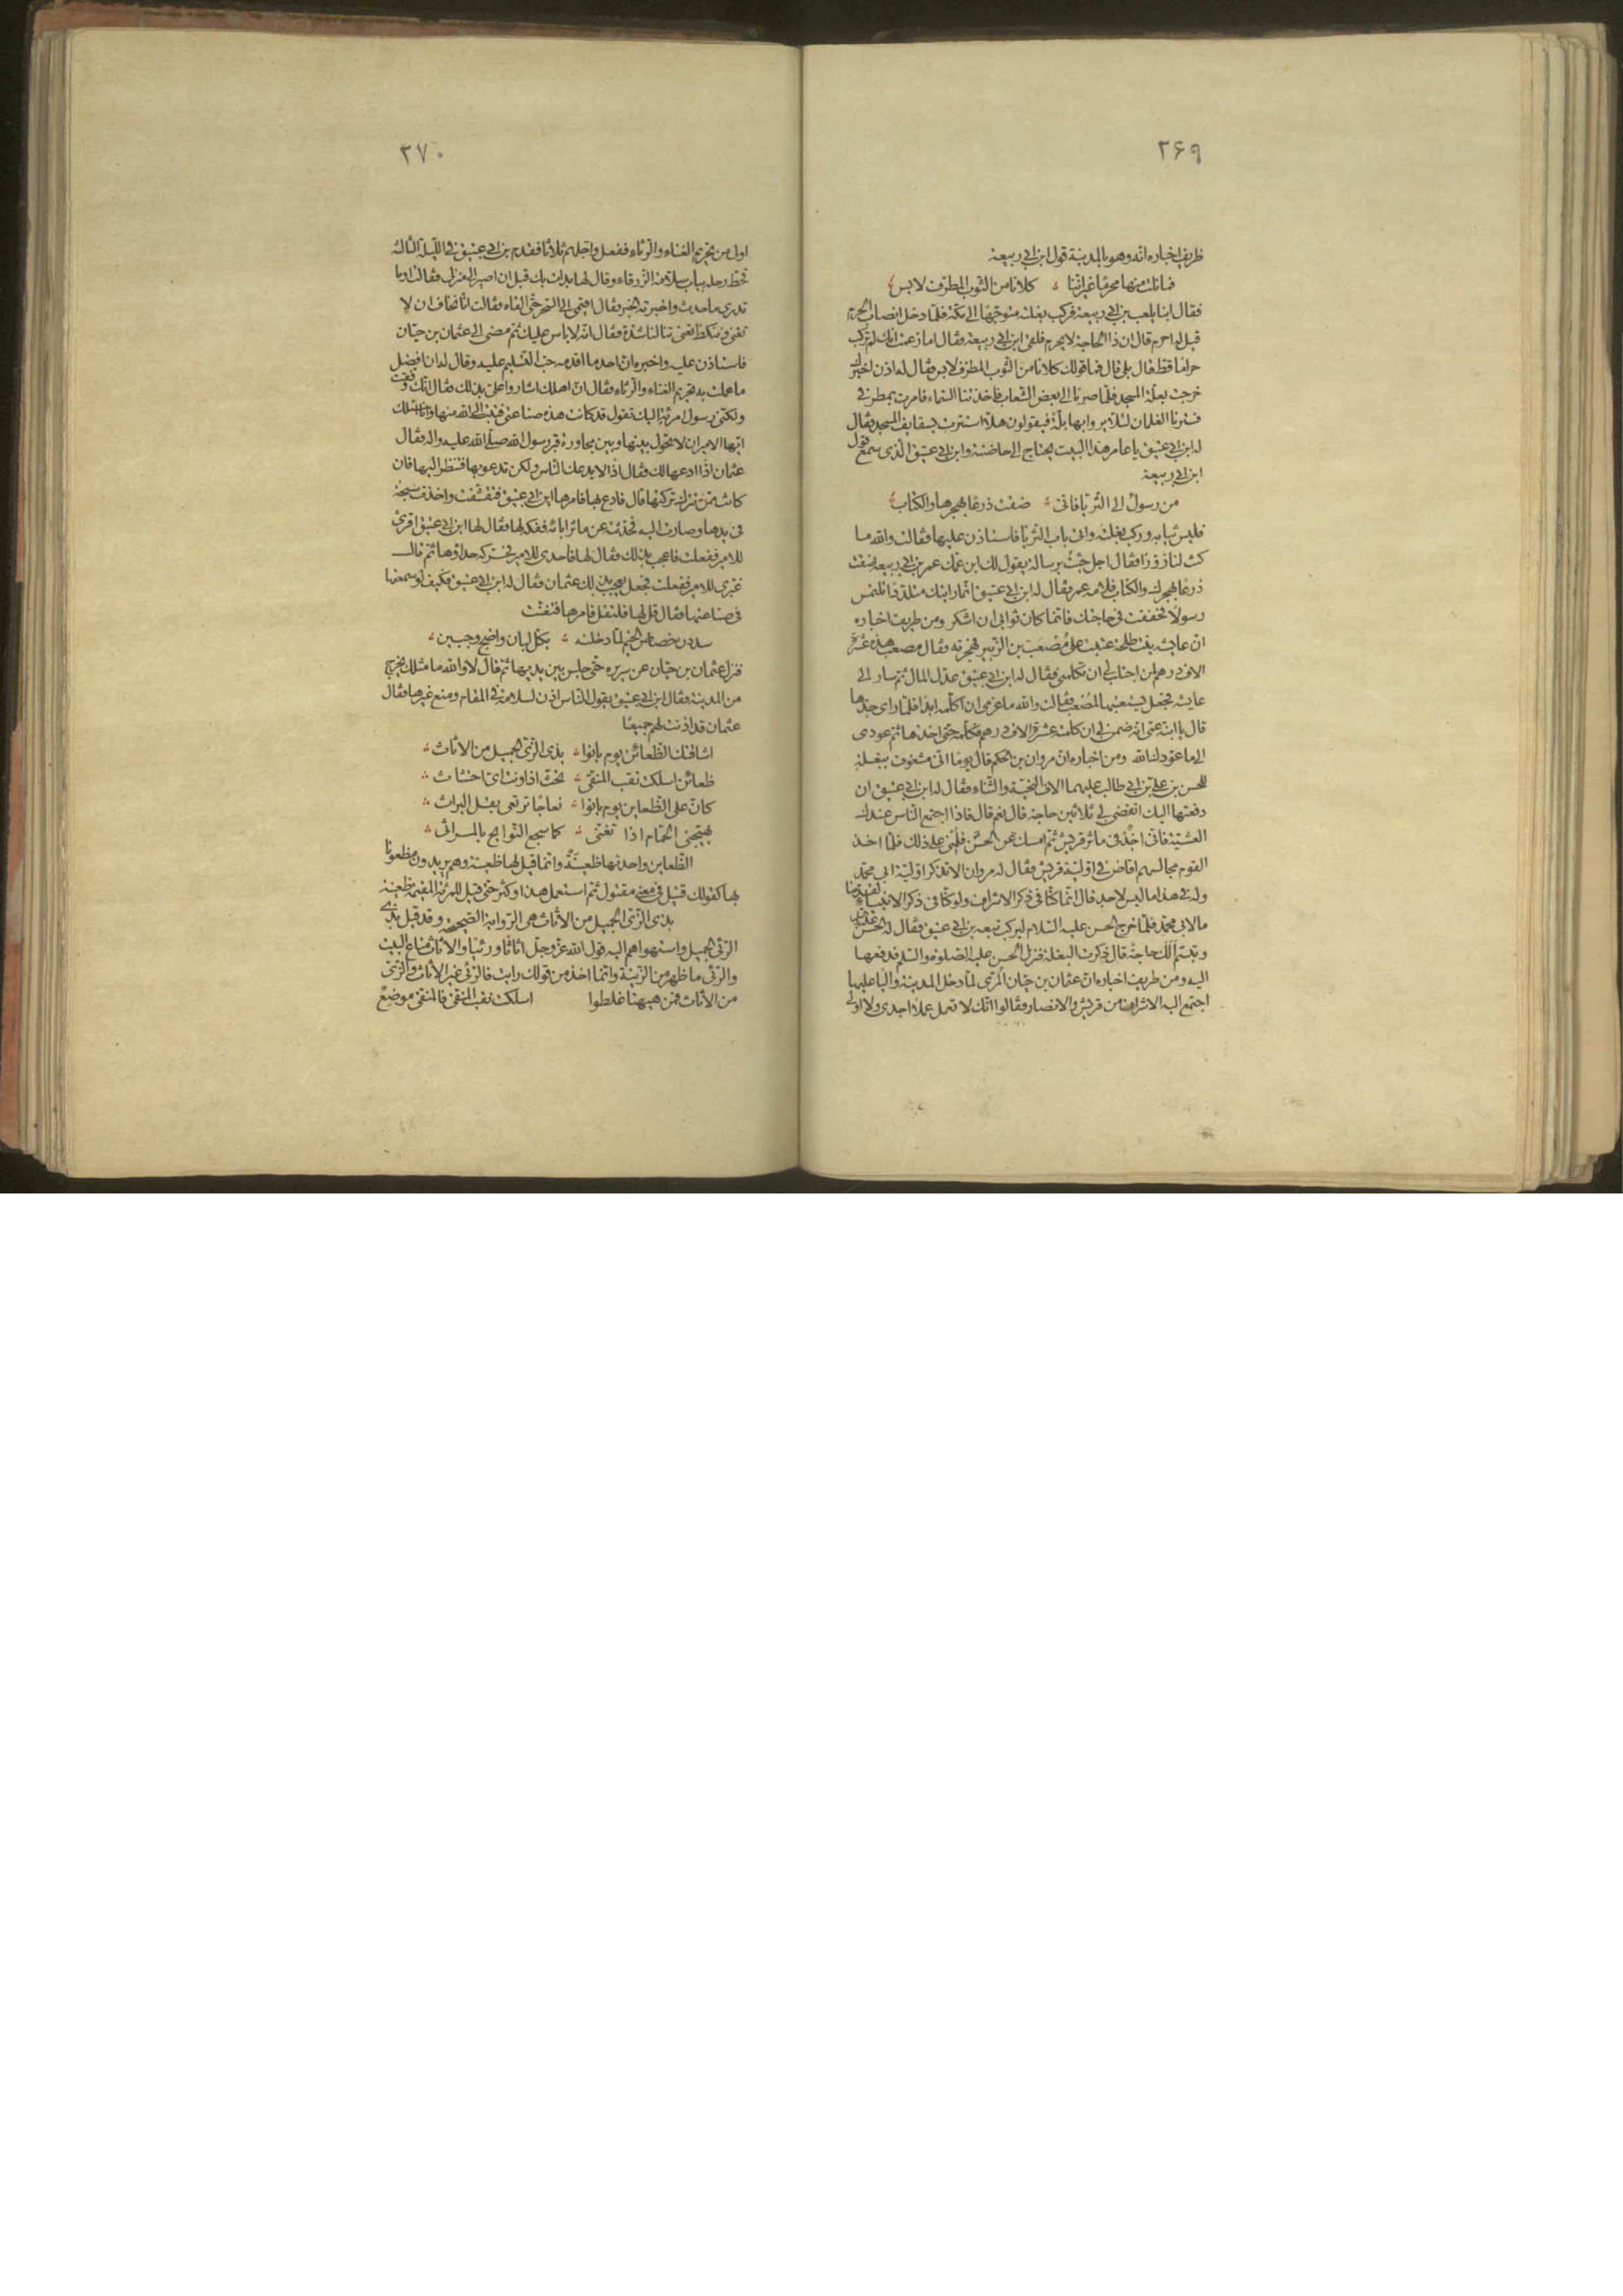 ٢۶٩
ظريف اخباره انه وهو بالمدينة قول ابن ابى ربيعة
فما نلت منها محرمًا غير اننا كلانا من الثوب المطرف لابس
فقال ابنا يلعب بن ابى ربيعة فركب بغلته متوجهًا الى مكة فلما دخل انصاب الحرم
قيل له احرم قال ان ذا الحاجة لا يحرم فلقى ابن ابى ربيعة فقال اما زعمت انك لم تركب
حرامًا قط قال بلى قال فما قولك كلانا من الثوب المطرف لابس فقال له اذن اخبرك
خرجت بعلة المسجد فلما صرنا الى بعض الشعاب فاخذتنا السماء فامرت بمطرفى
فسترنا الغلمان لئلا يروا بها بلة فيقولون هلا استترت بسقايف المسجد فقال
له ابن ابى عتيق يا عامر هذا البيت يحتاج الى حاضنة وابن ابى عتيق الذى سمع قول
ابن ابى ربيعة
من رسول الى الثريا فانى ضقت ذرعًا بهجرها والكتاب
فلبس ثيابه وركب بغلته واتى باب الثريا فاستاذن عليها فقالت والله ما
كنت لنا زوّرًا فقال اجل جئت برسالة يقول لك ابن عمك عمر بن ابى ربيعة ضقت
ذرعًا بهجرك والكتاب فلامه عمر فقال له ابن ابى عتيق انما رايتك متلددًا تلتمس
رسولا فخففت فى حاجتك فانما كان ثوابى ان اشكر ومن طريف اخباره
ان عايشه بنت طلحة عتبت على مصعب بن الزبير فهجرته فقال مصعب هذه عشرة
الاف درهم لمن احتال لى ان تكلمنى فقال له ابن ابى عتيق عدّل المال ثم سار الى
عايشه فجعل يستعتبها لمصعب فقالت والله ما عزمى ان اكلمه ابدًا فلما راى جدها
قال يا ابنة عمى انه ضمن لى ان كلمته عشرة الاف درهم فكلميه حتى اخذها ثم عودى
الى ما عوّدك الله ومن اخباره ان مروان بن الحكم قال يومًا انى مشغوف ببغلة
للحسن بن على بن ابى طالب عليهما الاف التحية والثناء فقال له ابن ابى عتيق ان
دفعتها اليك اتقضى لى ثلاثين حاجة قال نعم قال فاذا اجتمع الناس عندك
العشية فانى اخذ فى ماثر قريش ثم امسك عن الحسن فلمنى على ذلك فلما اخذ
القوم مجالسهم افاض فى اوّلية قريش فقال له مروان الا تذكر اوّلية ابى محمد
وله فى هذا ما ليس لاحد قال انما كنا فى ذكر الاشراف ولو كنا فى ذكر الانبياء لقدمنا
ما لابى محمد فلما خرج الحسن عليه السلام ليركب تبعه بن ابى عتيق فقال له الحسن
وتبسم الك حاجة قال ذكرت البغلة فنزل الحسن عليه الصلوة والسلم فدفعها
اليه ومن طريف اخباره ان عثمان بن حيان المرى لما دخل المدينة واليا عليها
اجتمع اليه الاشراف من قريش والانصار فقالوا انك لا تعمل عملا اجدى ولا اولى
٢٧٠
اولى من تحريم الغناء والرثاء ففعل واجلهم ثلاثا فقدم بن ابى عتيق فى الليلة الثالثة
فحط رحله بباب سلامة الزرقاء وقال لها بدات بك قبل ان اصير الى منزلى فقالت اوما
تدرى ما حدث واخبرته الخبر فقال اقيمى الى السحر حتى القاه فقالت انا نخاف ان لا
تغنى فقال انه لا باس عليك ثم مضى الى عثمان بن حيان
فاستاذن عليه واخبره ان احد ما اقدمه حب التسليم عليه وقال له ان افضل
ما عملت به تحريم الغناء والرثاء فقال ان اهلك اشاروا على بذلك فقال انك وفقت
ولكنى رسول امرءة اليك تقول قد كانت هذه صناعتى فتبت الى الله منها وانا اسئلك
ايها الامير ان لا تحول بينها وبين مجاورة قبر رسول الله صلى الله عليه واله فقال
عثمان اذًا ادعها لك فقال اذًا لا يدعك الناس ولكن تدعو بها فتنظر اليها فان
كانت ممن تترك تركتها قال فادع بها فامرها ابن ابى عتيق فتقشفت واخذت سبحة
فى يدها وصارت اليه فحدثته عن ماثر ابائه ففكه لها فقال لها ابن ابى عتيق اقرئى
للامير ففعلت فاعجب بذلك فقال لها فاحدى للامير فحركه حداؤها ثم قال
غيرى للامير ففعلت فجعل يعجب بذلك عثمان فقال له ابن ابى عتيق فكيف لو سمعتها
فى صناعتها فقال قل لها فلتقل فامرها فتغنت
سددن خصاص الخيم لما دخلنه بكل لبان واضح وجبين
فنزل عثمان بن حيان عن سريره حتى جلس بين يديها ثم قال لا والله ما مثلك يخرج
من المدينة فقال ابن ابى عتيق يقول الناس اذن لسلامة فى المقام ومنع غيرها فقال
عثمان قد اذنت لهم جميعًا
اشاقتك الظعائن يوم بانوا بذى الزى الجميل من الاثاث
ظعائن اسلكت نقب المنقى تحث اذا ونت اى احتثاث
كان على الظعاين يوم بانوا نعاجًا ترتعى بقل البراث
يهيجنى الحمام اذا تغنى كما سجع النوايح بالمراثى
الظعاين واحدتها ظعينة وانما قيل لها ظعينة وهم يريدون مظعونًا
بها كقولك قتيل فى معنى مقتول ثم استعمل هذا وكثر حتى قيل للمرءة المقيمة ظعينة
بذى الزى الجميل من الاثاث هى الرواية الصحيحة وقد قيل بذى
الرئى الجميل واستهواهم اليه قول الله عز وجل اثاثا ورئيا والاثاث متاع البيت
والرئى ما ظهر من الزينة وانما اخذ من قولك رايت فالرئى غير الاثاث والزى
من الاثاث فمن هيهنا غلطوا اسلكت نقب المنقى فالمنقى موضع